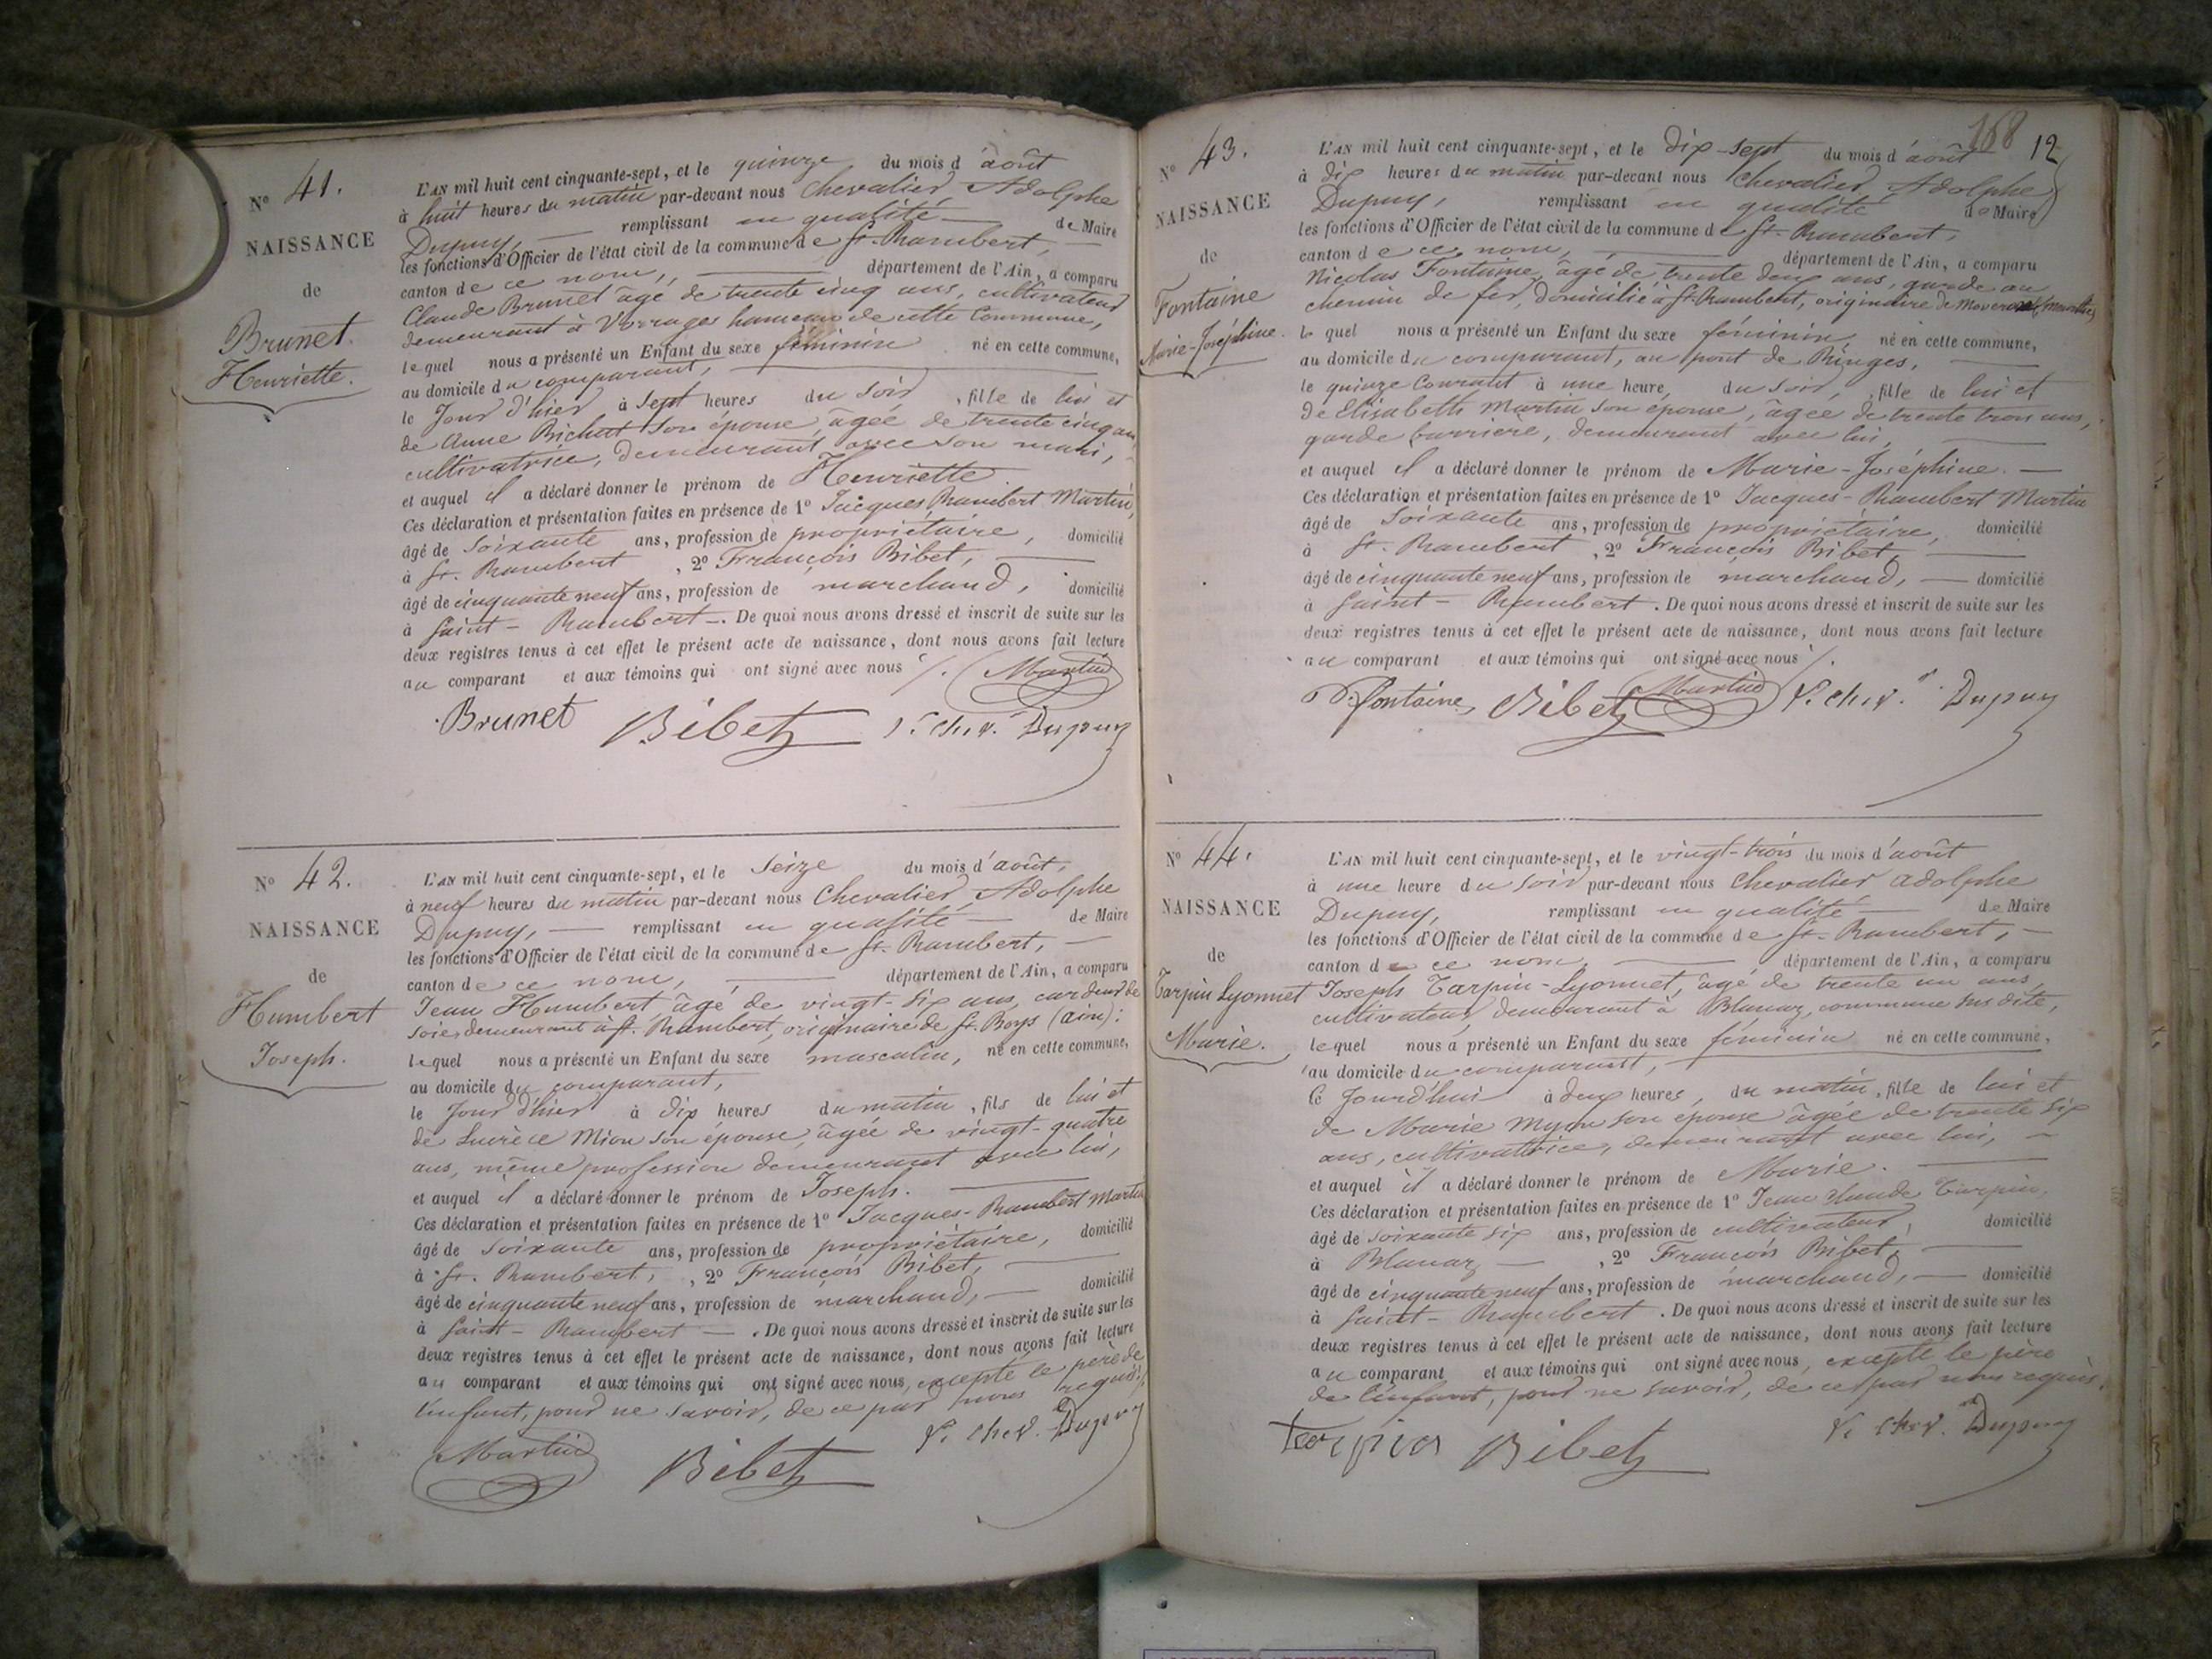 N° 41.
NAISSANCE
de
Brunet.
Henriette.
L'AN mil huit cent cinquante-sept, et le quinze du mois d'août
à huit heures du matin par-devant nous Chevalier Adolphe
Dupuy, remplissant en qualité de Maire
les fonctions d'Officier de l'état civil de la commune de St. Rambert,
canton de ce nom, département de l'Ain, a comparu
Claude Brunet âgé de trente cinq ans, cultivateur
demeurant à hameau de cette Commune,
lequel nous a présenté un Enfant du sexe féminin né en cette commune,
au domicile du comparant,
le Jour d'hier à Sept heures du Soir, fille de lui et
de Anne Bichat son épouse âgée de trente cinq ans
cultivatrice, demeurant avec son mari,
et auquel il a déclaré donner le prénom de Henriette
Ces déclaration et présentation faites en présence de 1° Jacques Rambert Martin,
âgé de Soixante ans, profession de propriétaire, domicilié
à St. Rambert, 2° François Bibet,
âgé de cinquante neuf ans, profession de marchand, domicilié
à Saint-Rambert. De quoi nous avons dressé et inscrit de suite sur les
deux registres tenus à cet effet le présent acte de naissance, dont nous avons fait lecture
au comparant et aux témoins qui ont signé avec nous /.
Martin
Brunet Bibet Chev. Dupuy
N° 42.
NAISSANCE
de
Humbert
Joseph.
L'AN mil huit cent cinquante-sept, et le Seize du mois d'août,
à neuf heures du matin par-devant nous Chevalier Adolphe
Dupuy, remplissant en qualité de Maire
les fonctions d'Officier de l'état civil de la commune de St. Rambert,
canton de ce nom, département de l'Ain, a comparu
Jean Humbert âgé de vingt-six ans, cardeur de
soie, demeurant à St. Rambert, originaire de St. Boys (ain):
lequel nous a présenté un Enfant du sexe masculin, né en cette commune,
au domicile du comparant,
le Jour d'hier à dix heures du matin, fils de lui et
de Lucrèce Mion son épouse, âgée de vingt-quatre
ans, même profession demeurant avec lui,
et auquel il a déclaré donner le prénom de Joseph.
Ces déclaration et présentation faites en présence de 1° Jacques-Rambert Martin
âgé de Soixante ans, profession de propriétaire, domicilié
à St. Rambert, 2° François Bibet,
âgé de cinquante neuf ans, profession de marchand, domicilié
à Saint-Rambert. De quoi nous avons dressé et inscrit de suite sur les
deux registres tenus à cet effet le présent acte de naissance, dont nous avons fait lecture
au comparant et aux témoins qui ont signé avec nous, excepté le père de
l'enfant, pour ne savoir, de ce par nous requis.
Martin Bibet Chev. Dupuy
168 12
N° 43.
NAISSANCE
de
Fontaine
Marie-Joséphine.
L'AN mil huit cent cinquante-sept, et le dix-sept du mois d'août
à dix heures du matin par-devant nous Chevalier Adolphe
Dupuy, remplissant en qualité de Maire
les fonctions d'Officier de l'état civil de la commune de St. Rambert,
canton de ce nom, département de l'Ain, a comparu
Nicolas Fontaine, âgé de trente deux ans, garde au
chemin de fer, domicilié à St. Rambert, originaire de
lequel nous a présenté un Enfant du sexe féminin, né en cette commune,
au domicile du comparant, au pont de Ringes,
le quinze Courant à une heure, du Soir, fille de lui et
de Elisabeth Martin son épouse, âgée de trente trois ans,
garde barrière, demeurant avec lui,
et auquel il a déclaré donner le prénom de Marie-Joséphine.
Ces déclaration et présentation faites en présence de 1° Jacques-Rambert Martin
âgé de Soixante ans, profession de propriétaire, domicilié
à St. Rambert, 2° François Bibet,
âgé de cinquante neuf ans, profession de marchand, domicilié
à Saint-Rambert. De quoi nous avons dressé et inscrit de suite sur les
deux registres tenus à cet effet le présent acte de naissance, dont nous avons fait lecture
au comparant et aux témoins qui ont signé avec nous /.
Fontaine Bibet Martin Chev. Dupuy
N° 44.
NAISSANCE
de
Tarpin Lyonnet
Marie.
L'AN mil huit cent cinquante-sept, et le vingt-trois du mois d'août
à une heure du Soir par-devant nous Chevalier Adolphe
Dupuy, remplissant en qualité de Maire
les fonctions d'Officier de l'état civil de la commune de St. Rambert,
canton de ce nom, département de l'Ain, a comparu
Joseph Tarpin-Lyonnet, âgé de trente un ans,
cultivateur, demeurant à Blanaz, commune sus dite,
lequel nous a présenté un Enfant du sexe féminin né en cette commune,
au domicile du comparant,
ce Jourd'hui à deux heures, du matin, fille de lui et
de Marie son épouse âgée de trente six
ans, cultivatrice, demeurant avec lui,
et auquel il a déclaré donner le prénom de Marie.
Ces déclaration et présentation faites en présence de 1° Jean Claude Tarpin,
âgé de soixante six ans, profession de cultivateur, domicilié
à Blanaz, 2° François Bibet,
âgé de cinquante neuf ans, profession de marchand, domicilié
à Saint-Rambert. De quoi nous avons dressé et inscrit de suite sur les
deux registres tenus à cet effet le présent acte de naissance, dont nous avons fait lecture
au comparant et aux témoins qui ont signé avec nous, excepté le père
de l'enfant, pour ne savoir, de ce par nous requis.
Tarpin Bibet Chev. Dupuy